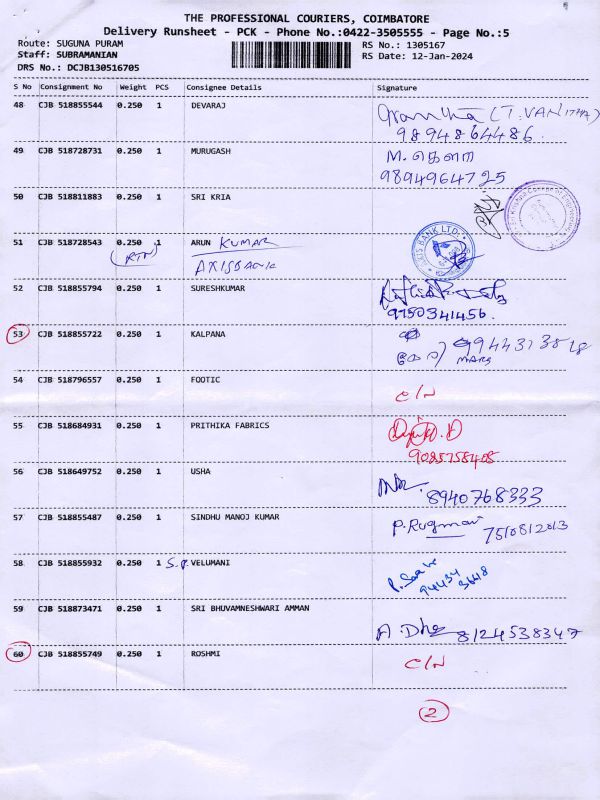 THE PROFESSIONAL COURIERS, COIMBATORE
Delivery Runsheet - PCK - Phone No.:0422-3505555 - Page No.:5
Route: SUGUNA PURAM RS No.: 1305167
Staff: SUBRAMANIAN RS Date: 12-Jan-2024
DRS No.: DCJB130516705
S No Consignment No Weight PCS Consignee Details Signature
48 CJB 518855544 0.250 1 DEVARAJ
9894864486.
49 CJB 518728731 0.250 1 MURUGASH M.
9894964725
50 CJB 518811883 0.250 1 SRI KRIA
51 CJB 518728543 0.250 1 ARUN KUMAR AXIS BANK LTD.
(RTN) AXIS BANK
52 CJB 518855794 0.250 1 SURESHKUMAR
9750341456.
53 CJB 518855722 0.250 1 KALPANA
54 CJB 518796557 0.250 1 FOOTIC C/N
55 CJB 518684931 0.250 1 PRITHIKA FABRICS
56 CJB 518649752 0.250 1 USHA 8940768333
57 CJB 518855487 0.250 1 SINDHU MANOJ KUMAR P. 7510812013
58 CJB 518855932 0.250 1 S.P. VELUMANI
94434
3648
59 CJB 518873471 0.250 1 SRI BHUVAMNESHWARI AMMAN
A. 8124538347
60 CJB 518855749 0.250 1 ROSHMI C/N
2